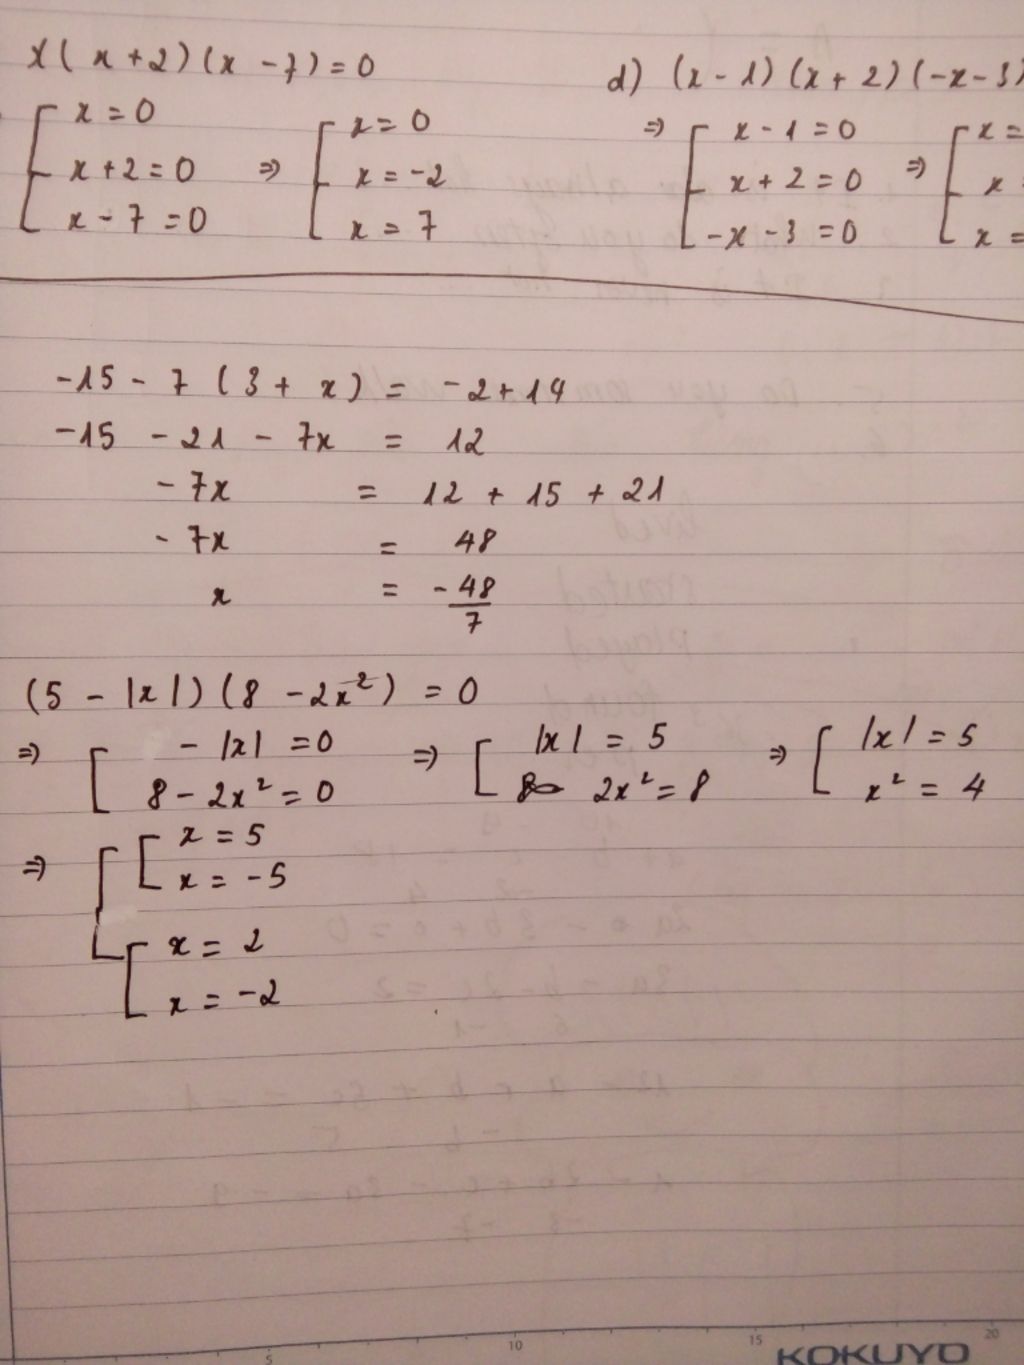 x(x+2)(x-7)=0
x=0
x+2=0
x-7=0
=> x=0
x=-2
x=7
d) (x-1)(x+2)(-x-3)
=> x-1=0
x+2=0
-x-3=0
=> x=
x
x=
-15-7(3+x)=-2+14
-15-21-7x=12
-7x=12+15+21
-7x=48
x=-48/7
(5-|x|)(8-2x²)=0
=> -|x|=0
8-2x²=0
=> |x|=5
2x²=8
=> |x|=5
x²=4
=> x=5
x=-5
x=2
x=-2
5 10 15 20
KOKUYO